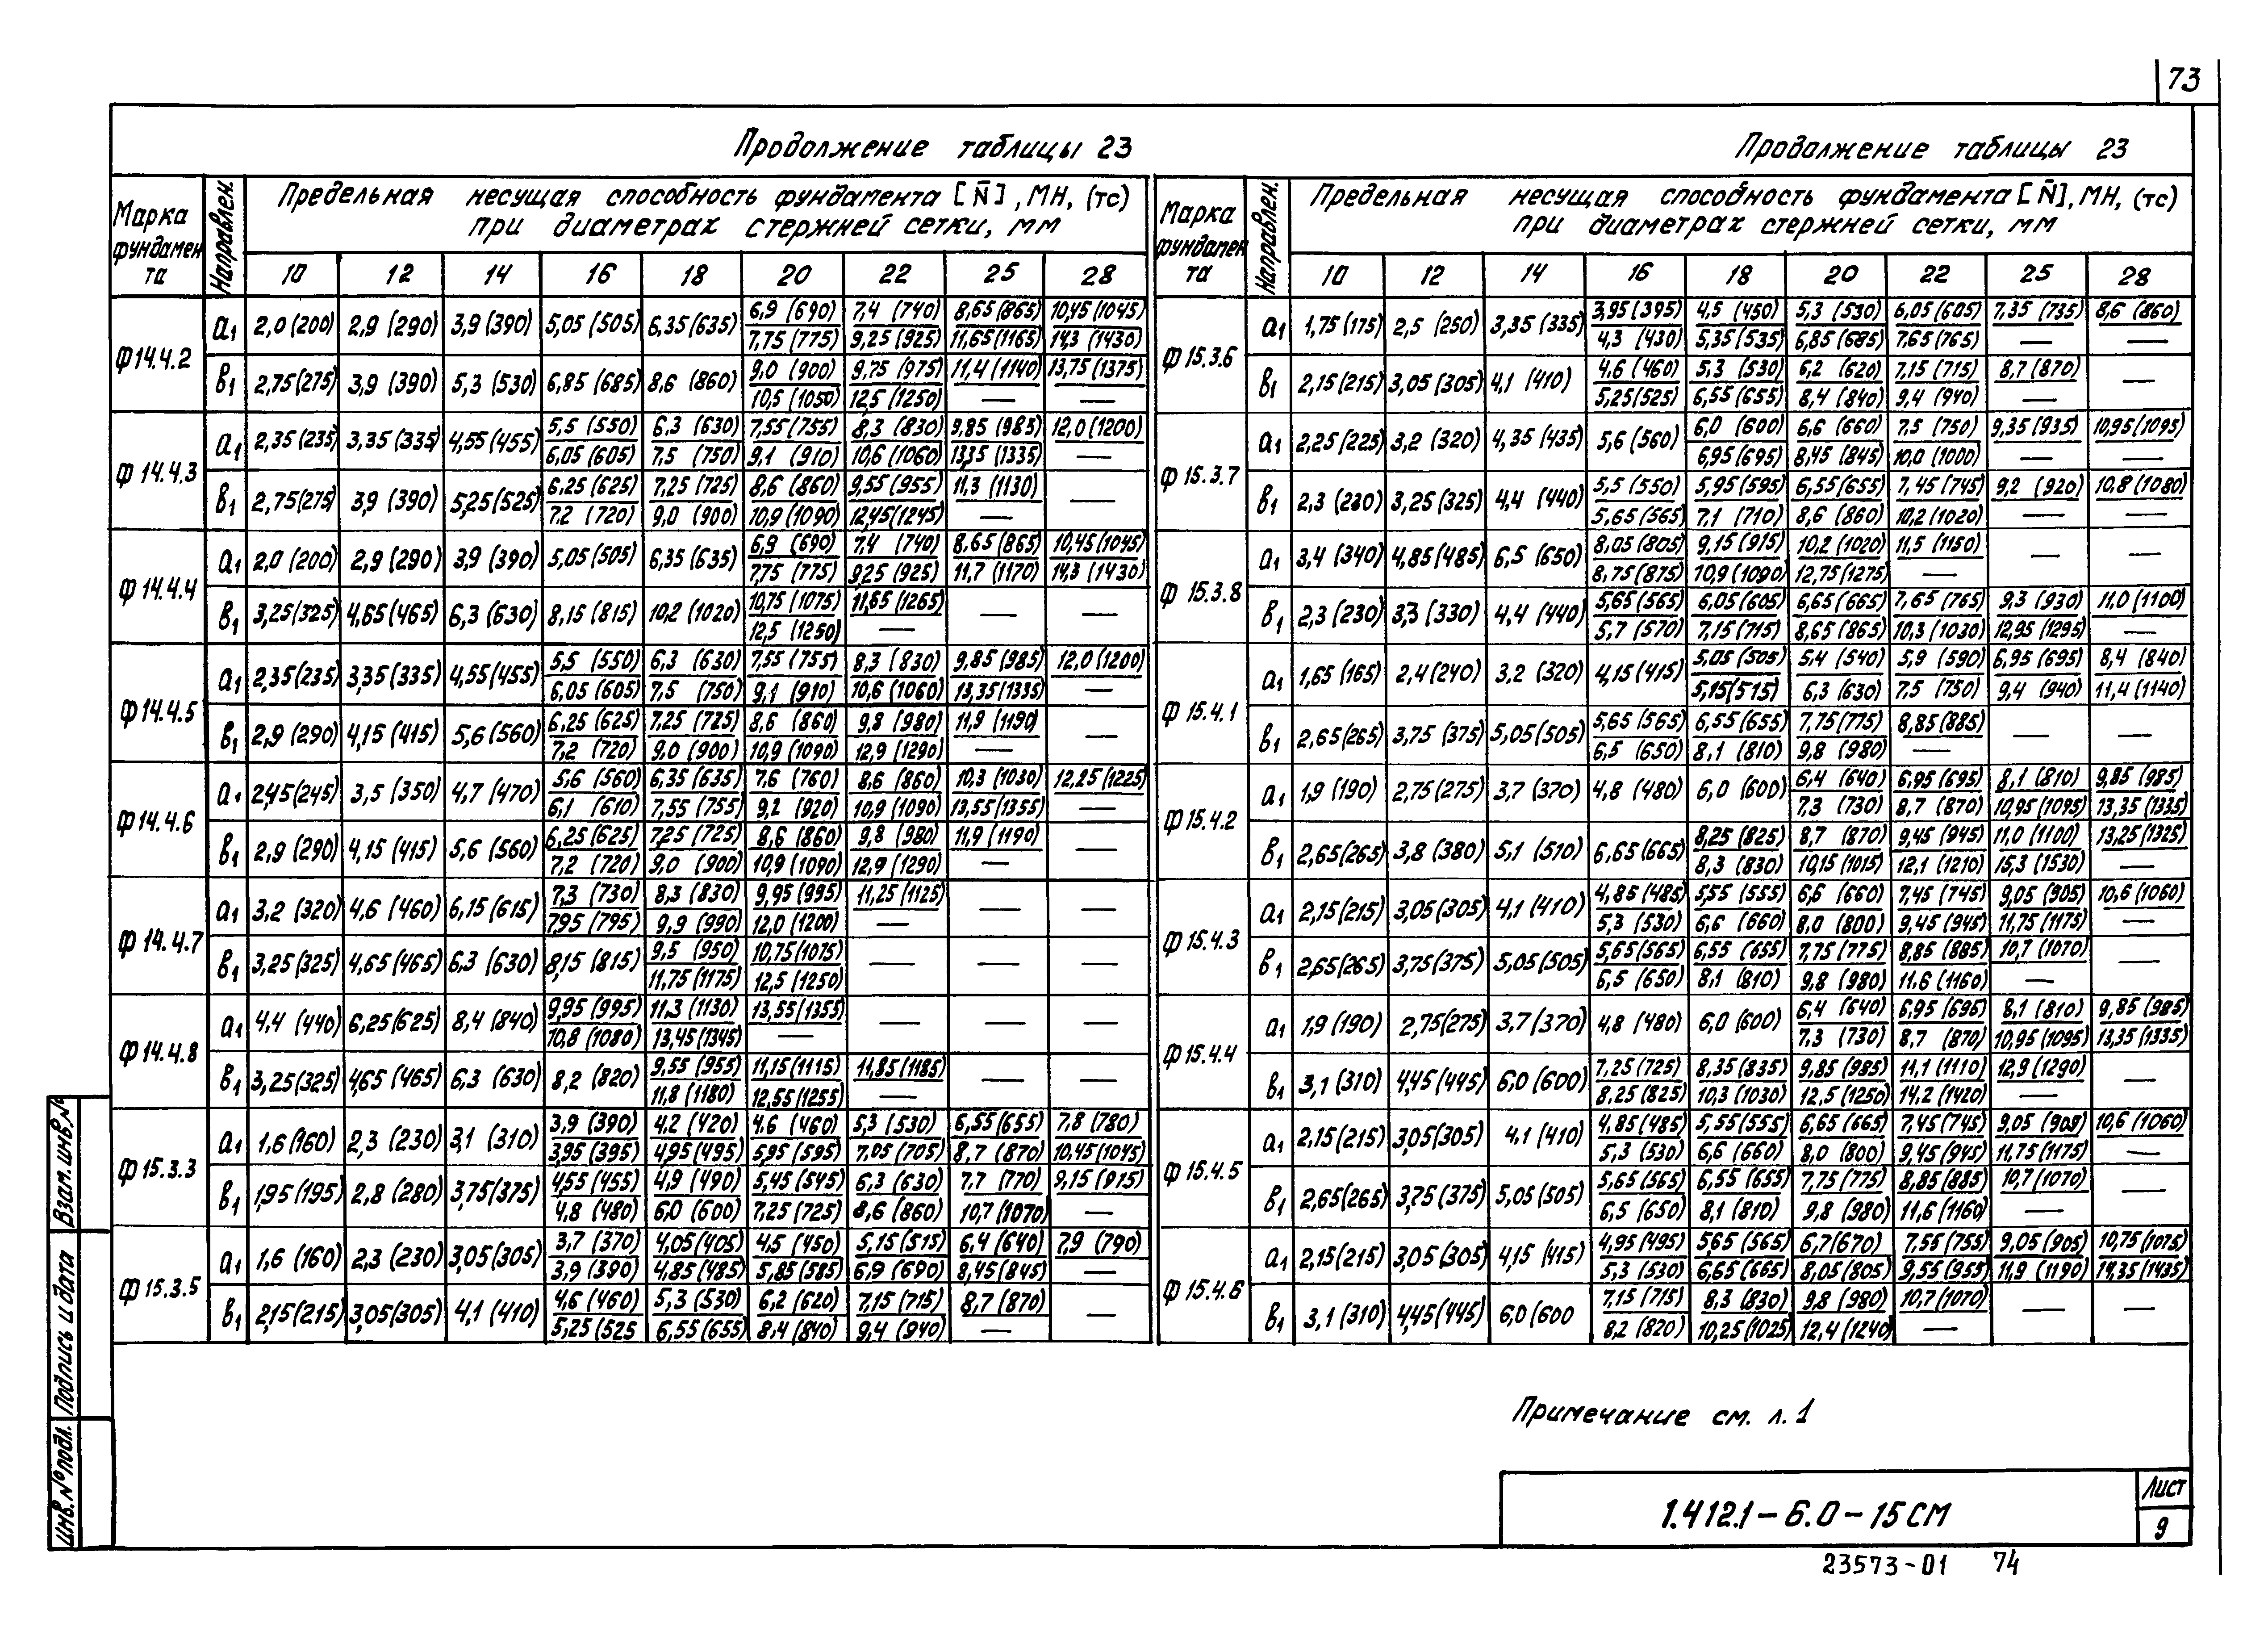 73
Продолжение таблицы 23
Марка фундамента | Направлен. | Предельная несущая способность фундамента [N̄], МН, (тс) при диаметрах стержней сетки, мм
10 | 12 | 14 | 16 | 18 | 20 | 22 | 25 | 28
Ф14.4.2 | а1 | 2,0 (200) | 2,9 (290) | 3,9 (390) | 5,05 (505) | 6,35 (635) | 6,9 (690) / 7,75 (775) | 7,4 (740) / 9,25 (925) | 8,65 (865) / 11,65 (1165) | 10,45 (1045) / 14,3 (1430)
в1 | 2,75 (275) | 3,9 (390) | 5,3 (530) | 6,85 (685) | 8,6 (860) | 9,0 (900) / 10,5 (1050) | 9,75 (975) / 12,5 (1250) | 11,4 (1140) / — | 13,75 (1375) / —
Ф14.4.3 | а1 | 2,35 (235) | 3,35 (335) | 4,55 (455) | 5,5 (550) / 6,05 (605) | 6,3 (630) / 7,5 (750) | 7,55 (755) / 9,1 (910) | 8,3 (830) / 10,6 (1060) | 9,85 (985) / 13,35 (1335) | 12,0 (1200) / —
в1 | 2,75 (275) | 3,9 (390) | 5,25 (525) | 6,25 (625) / 7,2 (720) | 7,25 (725) / 9,0 (900) | 8,6 (860) / 10,9 (1090) | 9,55 (955) / 12,45 (1245) | 11,3 (1130) / — | —
Ф14.4.4 | а1 | 2,0 (200) | 2,9 (290) | 3,9 (390) | 5,05 (505) | 6,35 (635) | 6,9 (690) / 7,75 (775) | 7,4 (740) / 9,25 (925) | 8,65 (865) / 11,7 (1170) | 10,45 (1045) / 14,3 (1430)
в1 | 3,25 (325) | 4,65 (465) | 6,3 (630) | 8,15 (815) | 10,2 (1020) | 10,75 (1075) / 12,5 (1250) | 11,65 (1265) / — | — | —
Ф14.4.5 | а1 | 2,35 (235) | 3,35 (335) | 4,55 (455) | 5,5 (550) / 6,05 (605) | 6,3 (630) / 7,5 (750) | 7,55 (755) / 9,1 (910) | 8,3 (830) / 10,6 (1060) | 9,85 (985) / 13,35 (1335) | 12,0 (1200) / —
в1 | 2,9 (290) | 4,15 (415) | 5,6 (560) | 6,25 (625) / 7,2 (720) | 7,25 (725) / 9,0 (900) | 8,6 (860) / 10,9 (1090) | 9,8 (980) / 12,9 (1290) | 11,9 (1190) / — | —
Ф14.4.6 | а1 | 2,45 (245) | 3,5 (350) | 4,7 (470) | 5,6 (560) / 6,1 (610) | 6,35 (635) / 7,55 (755) | 7,6 (760) / 9,2 (920) | 8,6 (860) / 10,9 (1090) | 10,3 (1030) / 13,55 (1355) | 12,25 (1225) / —
в1 | 2,9 (290) | 4,15 (415) | 5,6 (560) | 6,25 (625) / 7,2 (720) | 7,25 (725) / 9,0 (900) | 8,6 (860) / 10,9 (1090) | 9,8 (980) / 12,9 (1290) | 11,9 (1190) / — | —
Ф14.4.7 | а1 | 3,2 (320) | 4,6 (460) | 6,15 (615) | 7,3 (730) / 7,95 (795) | 8,3 (830) / 9,9 (990) | 9,95 (995) / 12,0 (1200) | 11,25 (1125) / — | — | —
в1 | 3,25 (325) | 4,65 (465) | 6,3 (630) | 8,15 (815) | 9,5 (950) / 11,75 (1175) | 10,75 (1075) / 12,5 (1250) | — | — | —
Ф14.4.8 | а1 | 4,4 (440) | 6,25 (625) | 8,4 (840) | 9,95 (995) / 10,8 (1080) | 11,3 (1130) / 13,45 (1345) | 13,55 (1355) / — | — | — | —
в1 | 3,25 (325) | 4,65 (465) | 6,3 (630) | 8,2 (820) | 9,55 (955) / 11,8 (1180) | 11,15 (1115) / 12,55 (1255) | 11,85 (1185) / — | — | —
Ф15.3.3 | а1 | 1,6 (160) | 2,3 (230) | 3,1 (310) | 3,9 (390) / 3,95 (395) | 4,2 (420) / 4,95 (495) | 4,6 (460) / 5,95 (595) | 5,3 (530) / 7,05 (705) | 6,55 (655) / 8,7 (870) | 7,8 (780) / 10,45 (1045)
в1 | 1,95 (195) | 2,8 (280) | 3,75 (375) | 4,55 (455) / 4,8 (480) | 4,9 (490) / 6,0 (600) | 5,45 (545) / 7,25 (725) | 6,3 (630) / 8,6 (860) | 7,7 (770) / 10,7 (1070) | 9,15 (915) / —
Ф15.3.5 | а1 | 1,6 (160) | 2,3 (230) | 3,05 (305) | 3,7 (370) / 3,9 (390) | 4,05 (405) / 4,85 (485) | 4,5 (450) / 5,85 (585) | 5,15 (515) / 6,9 (690) | 6,4 (640) / 8,45 (845) | 7,9 (790) / —
в1 | 2,15 (215) | 3,05 (305) | 4,1 (410) | 4,6 (460) / 5,25 (525 | 5,3 (530) / 6,55 (655) | 6,2 (620) / 8,4 (840) | 7,15 (715) / 9,4 (940) | 8,7 (870) / — | —
Продолжение таблицы 23
Марка фундамента | Направлен. | Предельная несущая способность фундамента [N̄], МН, (тс) при диаметрах стержней сетки, мм
10 | 12 | 14 | 16 | 18 | 20 | 22 | 25 | 28
Ф15.3.6 | а1 | 1,75 (175) | 2,5 (250) | 3,35 (335) | 3,95 (395) / 4,3 (430) | 4,5 (450) / 5,35 (535) | 5,3 (530) / 6,85 (685) | 6,05 (605) / 7,65 (765) | 7,35 (735) / — | 8,6 (860) / —
в1 | 2,15 (215) | 3,05 (305) | 4,1 (410) | 4,6 (460) / 5,25 (525) | 5,3 (530) / 6,55 (655) | 6,2 (620) / 8,4 (840) | 7,15 (715) / 9,4 (940) | 8,7 (870) / — | —
Ф15.3.7 | а1 | 2,25 (225) | 3,2 (320) | 4,35 (435) | 5,6 (560) | 6,0 (600) / 6,95 (695) | 6,6 (660) / 8,45 (845) | 7,5 (750) / 10,0 (1000) | 9,35 (935) / — | 10,95 (1095) / —
в1 | 2,3 (230) | 3,25 (325) | 4,4 (440) | 5,5 (550) / 5,65 (565) | 5,95 (595) / 7,1 (710) | 6,55 (655) / 8,6 (860) | 7,45 (745) / 10,2 (1020) | 9,2 (920) / — | 10,8 (1080) / —
Ф15.3.8 | а1 | 3,4 (340) | 4,85 (485) | 6,5 (650) | 8,05 (805) / 8,75 (875) | 9,15 (915) / 10,9 (1090) | 10,2 (1020) / 12,75 (1275) | 11,5 (1150) / — | — | —
в1 | 2,3 (230) | 3,3 (330) | 4,4 (440) | 5,65 (565) / 5,7 (570) | 6,05 (605) / 7,15 (715) | 6,65 (665) / 8,65 (865) | 7,65 (765) / 10,3 (1030) | 9,3 (930) / 12,95 (1295) | 11,0 (1100) / —
Ф15.4.1 | а1 | 1,65 (165) | 2,4 (240) | 3,2 (320) | 4,15 (415) | 5,05 (505) / 5,15 (515) | 5,4 (540) / 6,3 (630) | 5,9 (590) / 7,5 (750) | 6,95 (695) / 9,4 (940) | 8,4 (840) / 11,4 (1140)
в1 | 2,65 (265) | 3,75 (375) | 5,05 (505) | 5,65 (565) / 6,5 (650) | 6,55 (655) / 8,1 (810) | 7,75 (775) / 9,8 (980) | 8,85 (885) / — | — | —
Ф15.4.2 | а1 | 1,9 (190) | 2,75 (275) | 3,7 (370) | 4,8 (480) | 6,0 (600) | 6,4 (640) / 7,3 (730) | 6,95 (695) / 8,7 (870) | 8,1 (810) / 10,95 (1095) | 9,85 (985) / 13,35 (1335)
в1 | 2,65 (265) | 3,8 (380) | 5,1 (510) | 6,65 (665) | 8,25 (825) / 8,3 (830) | 8,7 (870) / 10,15 (1015) | 9,45 (945) / 12,1 (1210) | 11,0 (1100) / 15,3 (1530) | 13,25 (1325) / —
Ф15.4.3 | а1 | 2,15 (215) | 3,05 (305) | 4,1 (410) | 4,85 (485) / 5,3 (530) | 5,55 (555) / 6,6 (660) | 6,6 (660) / 8,0 (800) | 7,45 (745) / 9,45 (945) | 9,05 (905) / 11,75 (1175) | 10,6 (1060) / —
в1 | 2,65 (265) | 3,75 (375) | 5,05 (505) | 5,65 (565) / 6,5 (650) | 6,55 (655) / 8,1 (810) | 7,75 (775) / 9,8 (980) | 8,85 (885) / 11,6 (1160) | 10,7 (1070) / — | —
Ф15.4.4 | а1 | 1,9 (190) | 2,75 (275) | 3,7 (370) | 4,8 (480) | 6,0 (600) | 6,4 (640) / 7,3 (730) | 6,95 (695) / 8,7 (870) | 8,1 (810) / 10,95 (1095) | 9,85 (985) / 13,35 (1335)
в1 | 3,1 (310) | 4,45 (445) | 6,0 (600) | 7,25 (725) / 8,25 (825) | 8,35 (835) / 10,3 (1030) | 9,85 (985) / 12,5 (1250) | 11,1 (1110) / 14,2 (1420) | 12,9 (1290) / — | —
Ф15.4.5 | а1 | 2,15 (215) | 3,05 (305) | 4,1 (410) | 4,85 (485) / 5,3 (530) | 5,55 (555) / 6,6 (660) | 6,65 (665) / 8,0 (800) | 7,45 (745) / 9,45 (945) | 9,05 (905) / 11,75 (1175) | 10,6 (1060) / —
в1 | 2,65 (265) | 3,75 (375) | 5,05 (505) | 5,65 (565) / 6,5 (650) | 6,55 (655) / 8,1 (810) | 7,75 (775) / 9,8 (980) | 8,85 (885) / 11,6 (1160) | 10,7 (1070) / — | —
Ф15.4.6 | а1 | 2,15 (215) | 3,05 (305) | 4,15 (415) | 4,95 (495) / 5,3 (530) | 5,65 (565) / 6,65 (665) | 6,7 (670) / 8,05 (805) | 7,55 (755) / 9,55 (955) | 9,05 (905) / 11,9 (1190) | 10,75 (1075) / 14,35 (1435)
в1 | 3,1 (310) | 4,45 (445) | 6,0 (600 | 7,15 (715) / 8,2 (820) | 8,3 (830) / 10,25 (1025) | 9,8 (980) / 12,4 (1240) | 10,7 (1070) / — | — | —
Примечание см. л. 1
1.412.1 – 6.0 – 15 СМ
Лист
9
23573-01 74
Инв. № подл.
Подпись и дата
Взам. инв. №